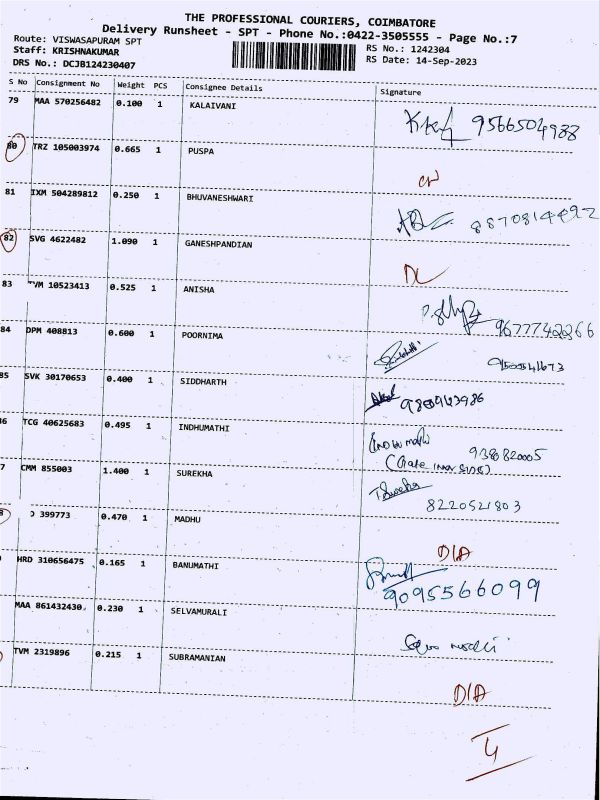 THE PROFESSIONAL COURIERS, COIMBATORE
Delivery Runsheet - SPT - Phone No.:0422-3505555 - Page No.:7
Route: VISWASAPURAM SPT
Staff: KRISHNAKUMAR
DRS No.: DCJB124230407
RS No.: 1242304
RS Date: 14-Sep-2023
S No Consignment No Weight PCS Consignee Details Signature
79 MAA 570256482 0.100 1 KALAIVANI 9566504988
80 TRZ 105003974 0.665 1 PUSPA
81 IXM 504289812 0.250 1 BHUVANESHWARI 8870814492
82 SVG 4622482 1.090 1 GANESHPANDIAN DL
83 TVM 10523413 0.525 1 ANISHA 9677742266
84 DPM 408813 0.600 1 POORNIMA 9500541673
85 SVK 30170653 0.400 1 SIDDHARTH
6 TCG 40625683 0.495 1 INDHUMATHI
7 CMM 855003 1.400 1 SUREKHA Surekha 8220521803
399773 0.470 1 MADHU D/A
HRD 310656475 0.165 1 BANUMATHI 9095566099
MAA 861432430 0.230 1 SELVAMURALI
TVM 2319896 0.215 1 SUBRAMANIAN D/A
4